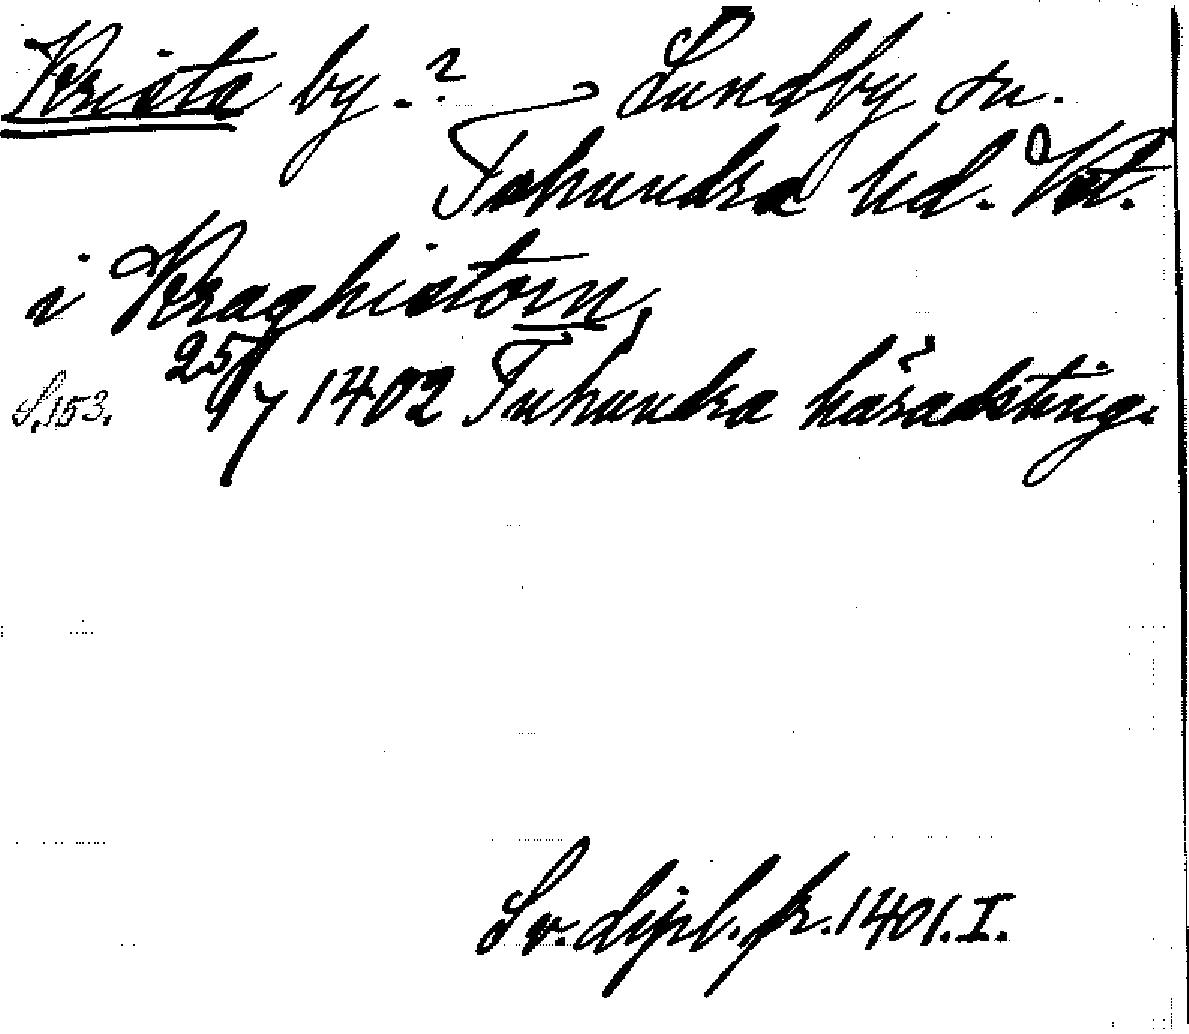 Krista by.? Lundby sn.
Tuhundra hd. Vstm.
i Kraghistom,
S. 153. 25/7 1402 Tuhundra häradsting.
Sv. dipl. fr. 1401. I.